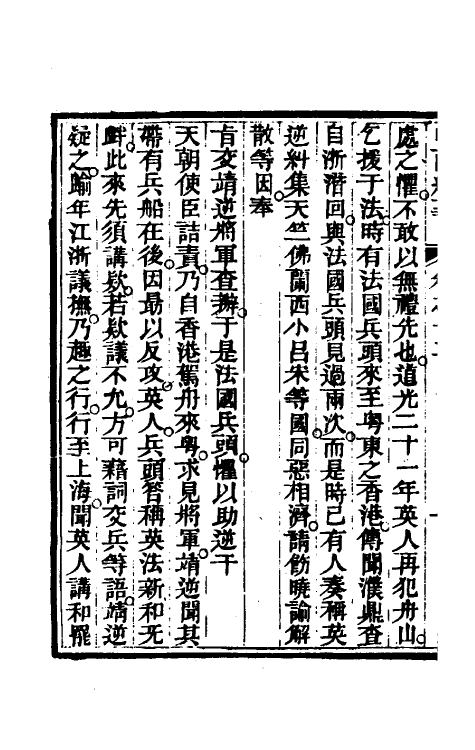 處之懼不敢以無禮先也道光二十一年英人再犯舟山
乞援于法時有法國兵頭來至粵東之香港傳聞濮鼎查
自浙潛回與法國兵頭見過兩次而是時已有人奏稱英
逆糾集天竺佛蘭西小呂宋等國同惡相濟請飭曉諭解
散等因奉
旨交靖逆將軍查辦于是法國兵頭懼以助逆干
天朝使臣詰責乃自香港駕舟來粵求見將軍靖逆聞其
帶有兵船在後因勗以反攻英人兵頭答稱英法新和无
衅此來先須講欵若欵議不允方可藉詞交兵等語靖逆
疑之踰年江浙議撫乃趣之行行至上海聞英人講和罷